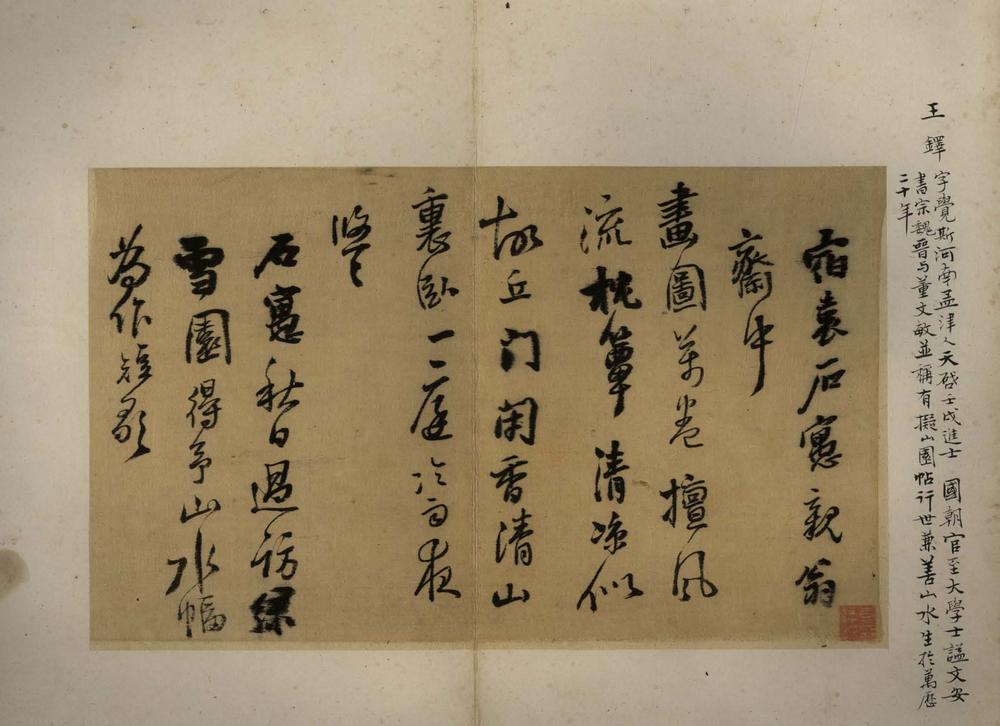 王鐸
字覺斯河南孟津人天啓壬戌進士 國朝官至大學士謚文安
書宗魏晉与董文敏並稱有擬山園帖行世兼善山水生於萬歷
二十年
宿袁石寓親翁
齋中
畫圖萬卷擅風
流枕簟清凉似
故丘門閑香清山
裏臥一庭冷雨夜
悠々
石寓秋日過訪緑
雪園得予山水幅
為作短歌